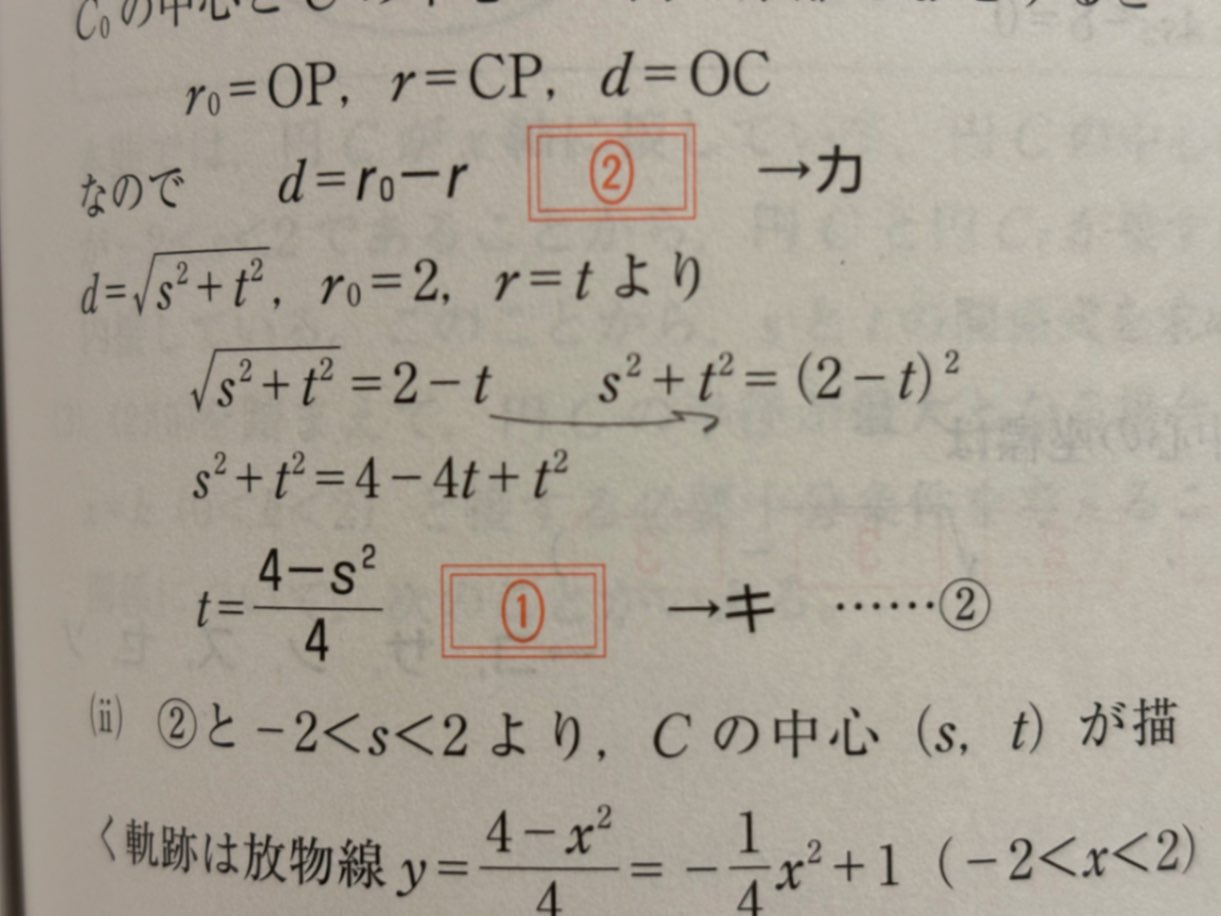 C₀の中心と
r₀=OP, r=CP, d=OC
なので d=r₀−r ② →カ
d=√(s²+t²), r₀=2, r=t より
√(s²+t²)=2−t s²+t²=(2−t)²
s²+t²=4−4t+t²
t=(4−s²)/4 ① →キ ……②
(ii) ②と −2<s<2 より, C の中心 (s, t) が描
く軌跡は放物線 y=(4−x²)/4=−(1/4)x²+1 (−2<x<2)